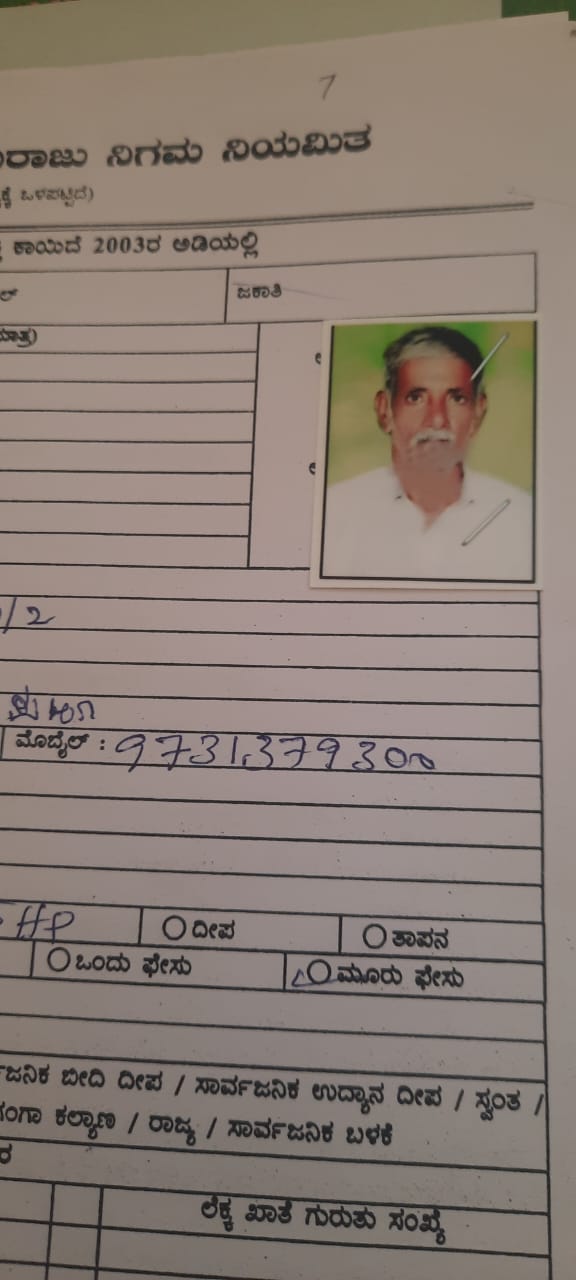 7
ರಾಜು ನಿಗಮ ನಿಯಮಿತ
ಒಳಪಟ್ಟಿದೆ)
ಕಾಯಿದೆ 2003ರ ಅಡಿಯಲ್ಲಿ
ಜಕಾತಿ
ಮಾತ್ರ)
/2
ಮೊಬೈಲ್ : 9731379300
HP
ದೀಪ
ತಾಪನ
ಒಂದು ಫೇಸು
ಮೂರು ಫೇಸು
ಜನಿಕ ಬೀದಿ ದೀಪ / ಸಾರ್ವಜನಿಕ ಉದ್ಯಾನ ದೀಪ / ಸ್ವಂತ /
ಗಂಗಾ ಕಲ್ಯಾಣ / ರಾಜ್ಯ / ಸಾರ್ವಜನಿಕ ಬಳಕೆ
ಲೆಕ್ಕ ಖಾತೆ ಗುರುತು ಸಂಖ್ಯೆ